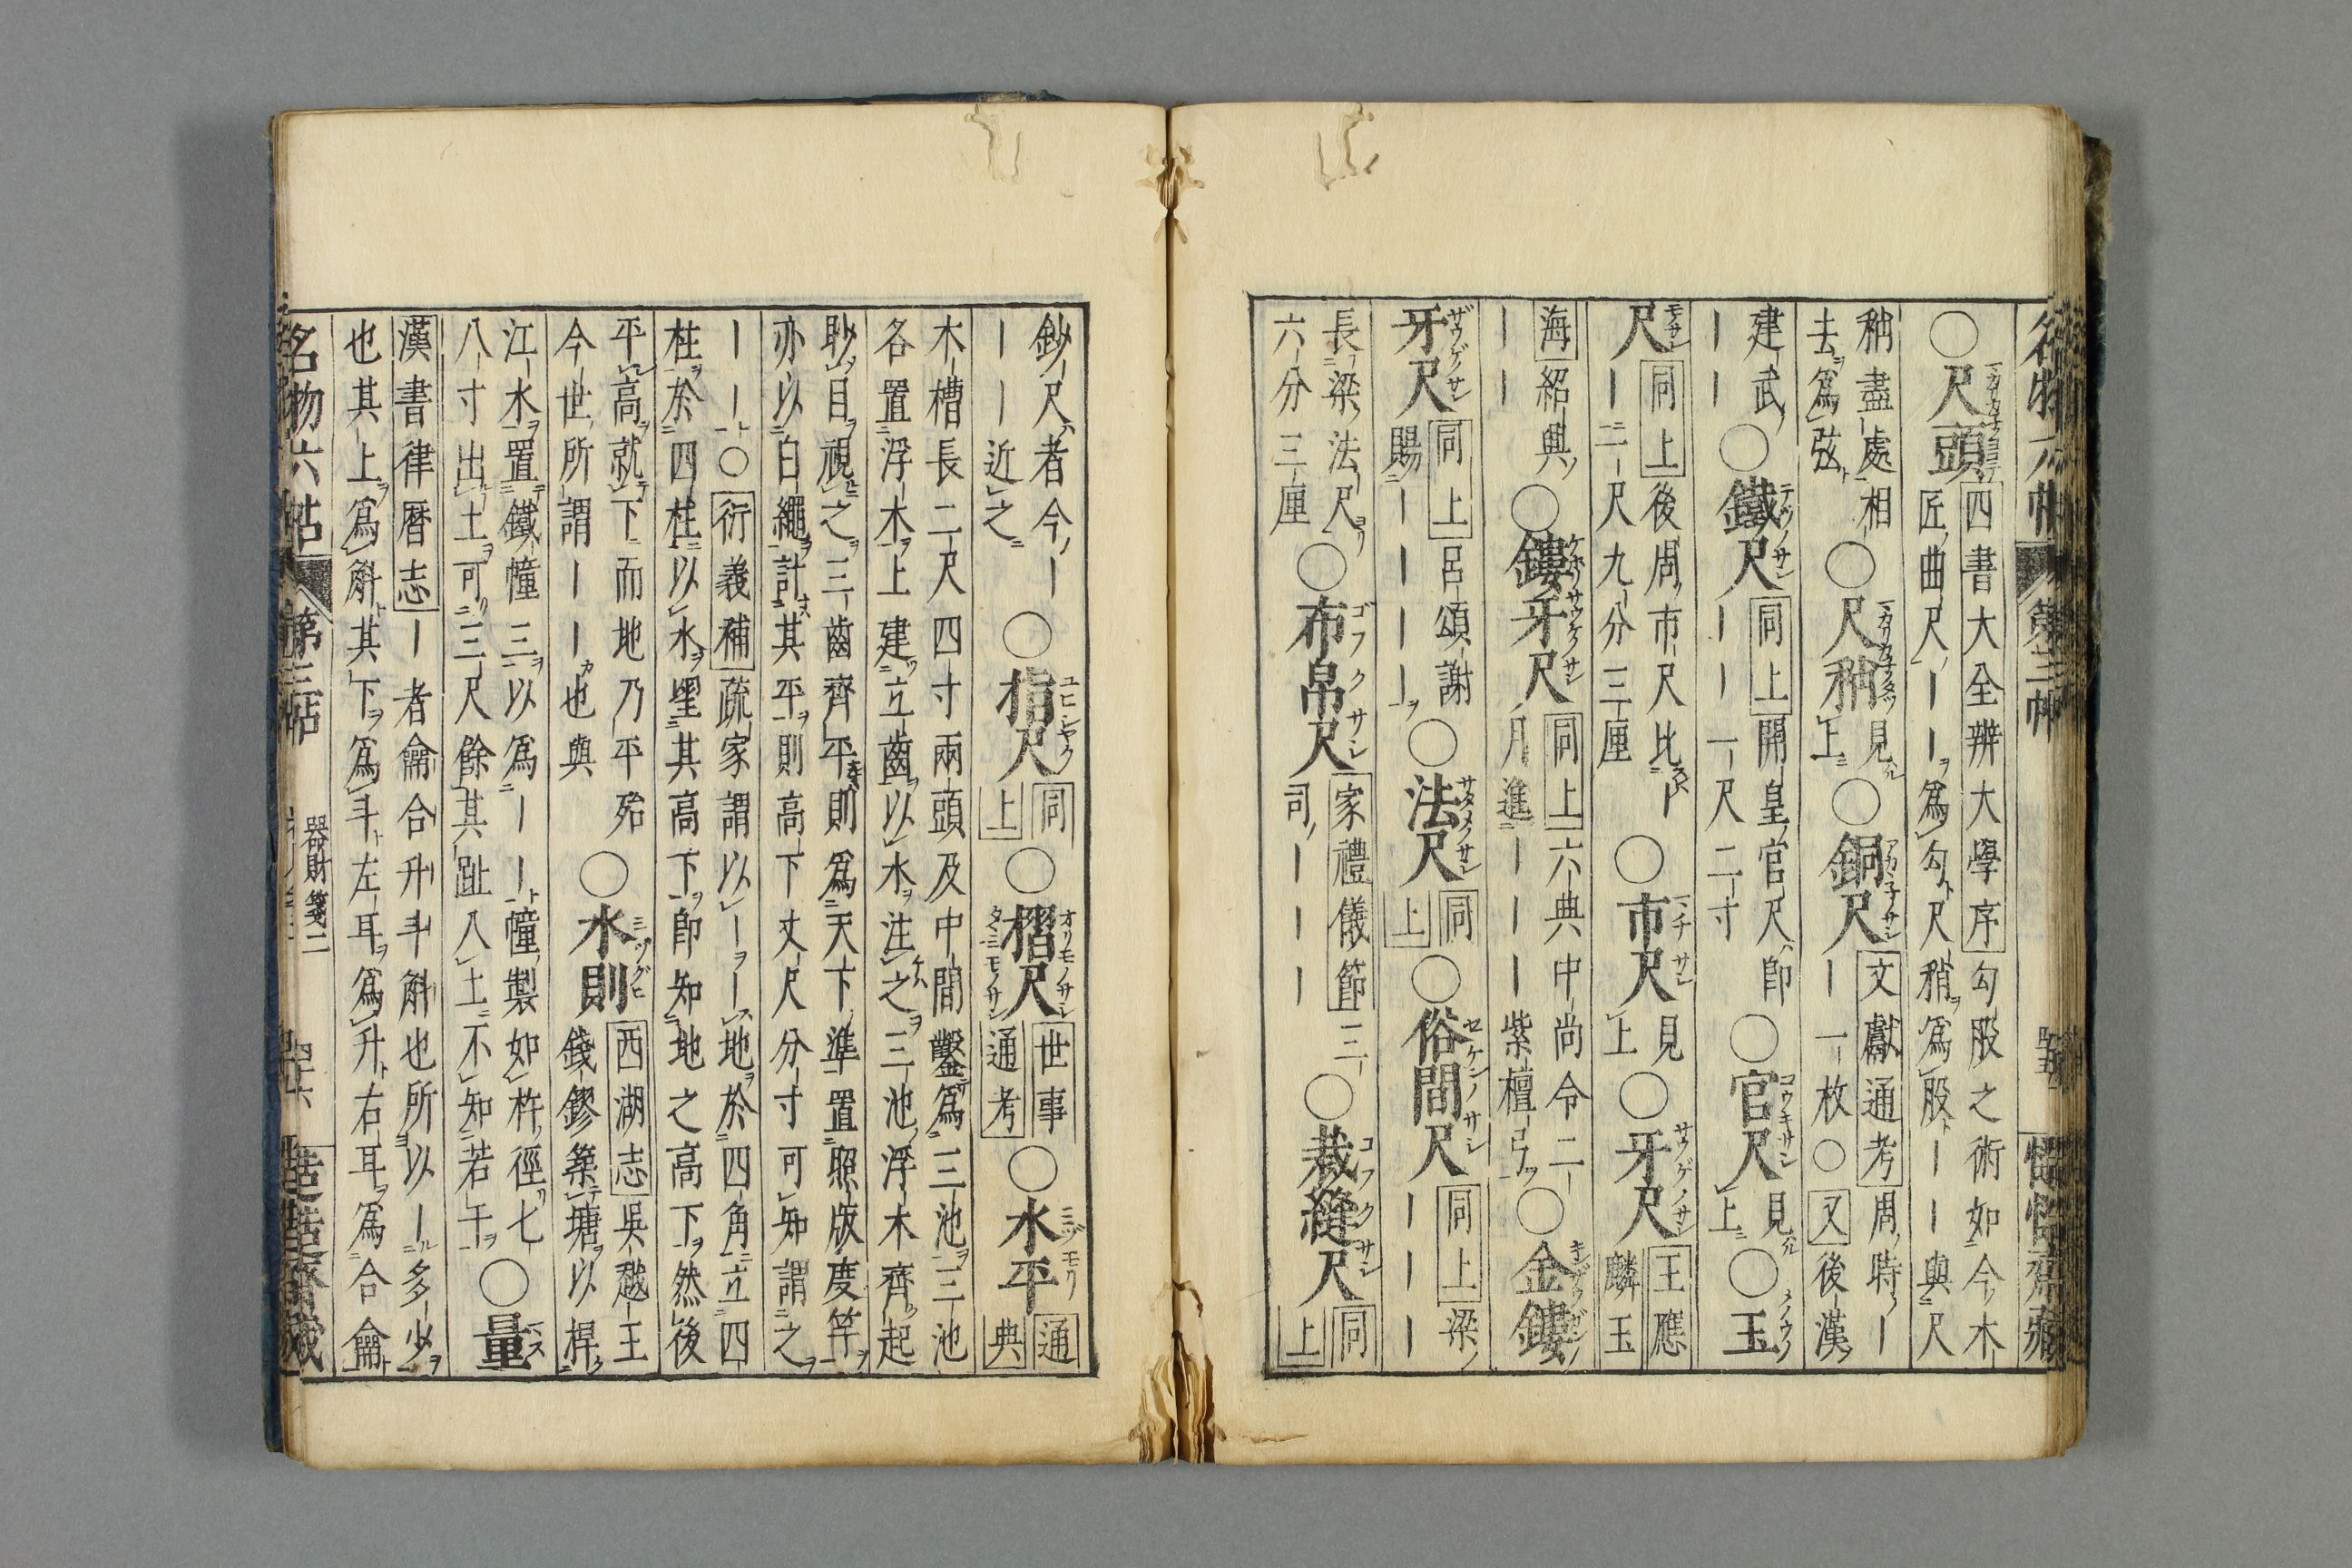 〇尺頭 四書大全辨大學序 勾股之術如今木
匠曲尺｜｜爲勾尺稍爲股｜｜與尺
稍盡處相
去爲弦 〇尺稍 見上 〇銅尺 文獻通考 周時｜
｜一枚〇又後漢
建武
｜｜ 〇鐵尺 同上 開皇官尺即
｜｜一尺二寸 〇官尺 見上 〇玉
尺 同上 後周市尺比｜
｜二尺九分三厘 〇市尺 見上 〇牙尺 王應
麟玉
海 紹興
｜｜ 〇鏤牙尺 同上 六典中尚令二
月進｜｜｜紫檀弓 〇金鏤
牙尺 同上 呂頌謝
賜｜｜｜｜ 〇法尺 同上 〇俗間尺 同上 梁
｜｜｜
長梁法尺
六分三厘 〇布帛尺 家禮儀節 三
司｜｜｜ 〇裁縫尺 同上
鈔尺者今｜
｜｜近之 〇指尺 同上 〇摺尺 世事通考 〇水平 通典
木槽長二尺四寸兩頭及中間鑿爲三池三池
各置浮木上建立齒以水注之三池浮木齊起
眇目視之三齒齊平則爲天下準置照版度竿
亦以白繩計其平則高下丈尺分寸可知謂之
｜｜〇衍義補 疏家謂以｜｜地於四角立四
柱於四柱以水望其高下即知地之高下然後
平高就下而地乃平殆
今世所謂｜｜也與 〇水則 西湖志 吳越王
錢鏐築塘以桿
江水置鐵幢三以爲｜｜幢製如杵徑七
八寸出土可三尺餘其趾入土不知若干 〇量
漢書律曆志 ｜者龠合升斗斛也所以｜多少
也其上爲斛其下爲斗左耳爲升右耳爲合龠
名物六帖 第三帖 器財箋二